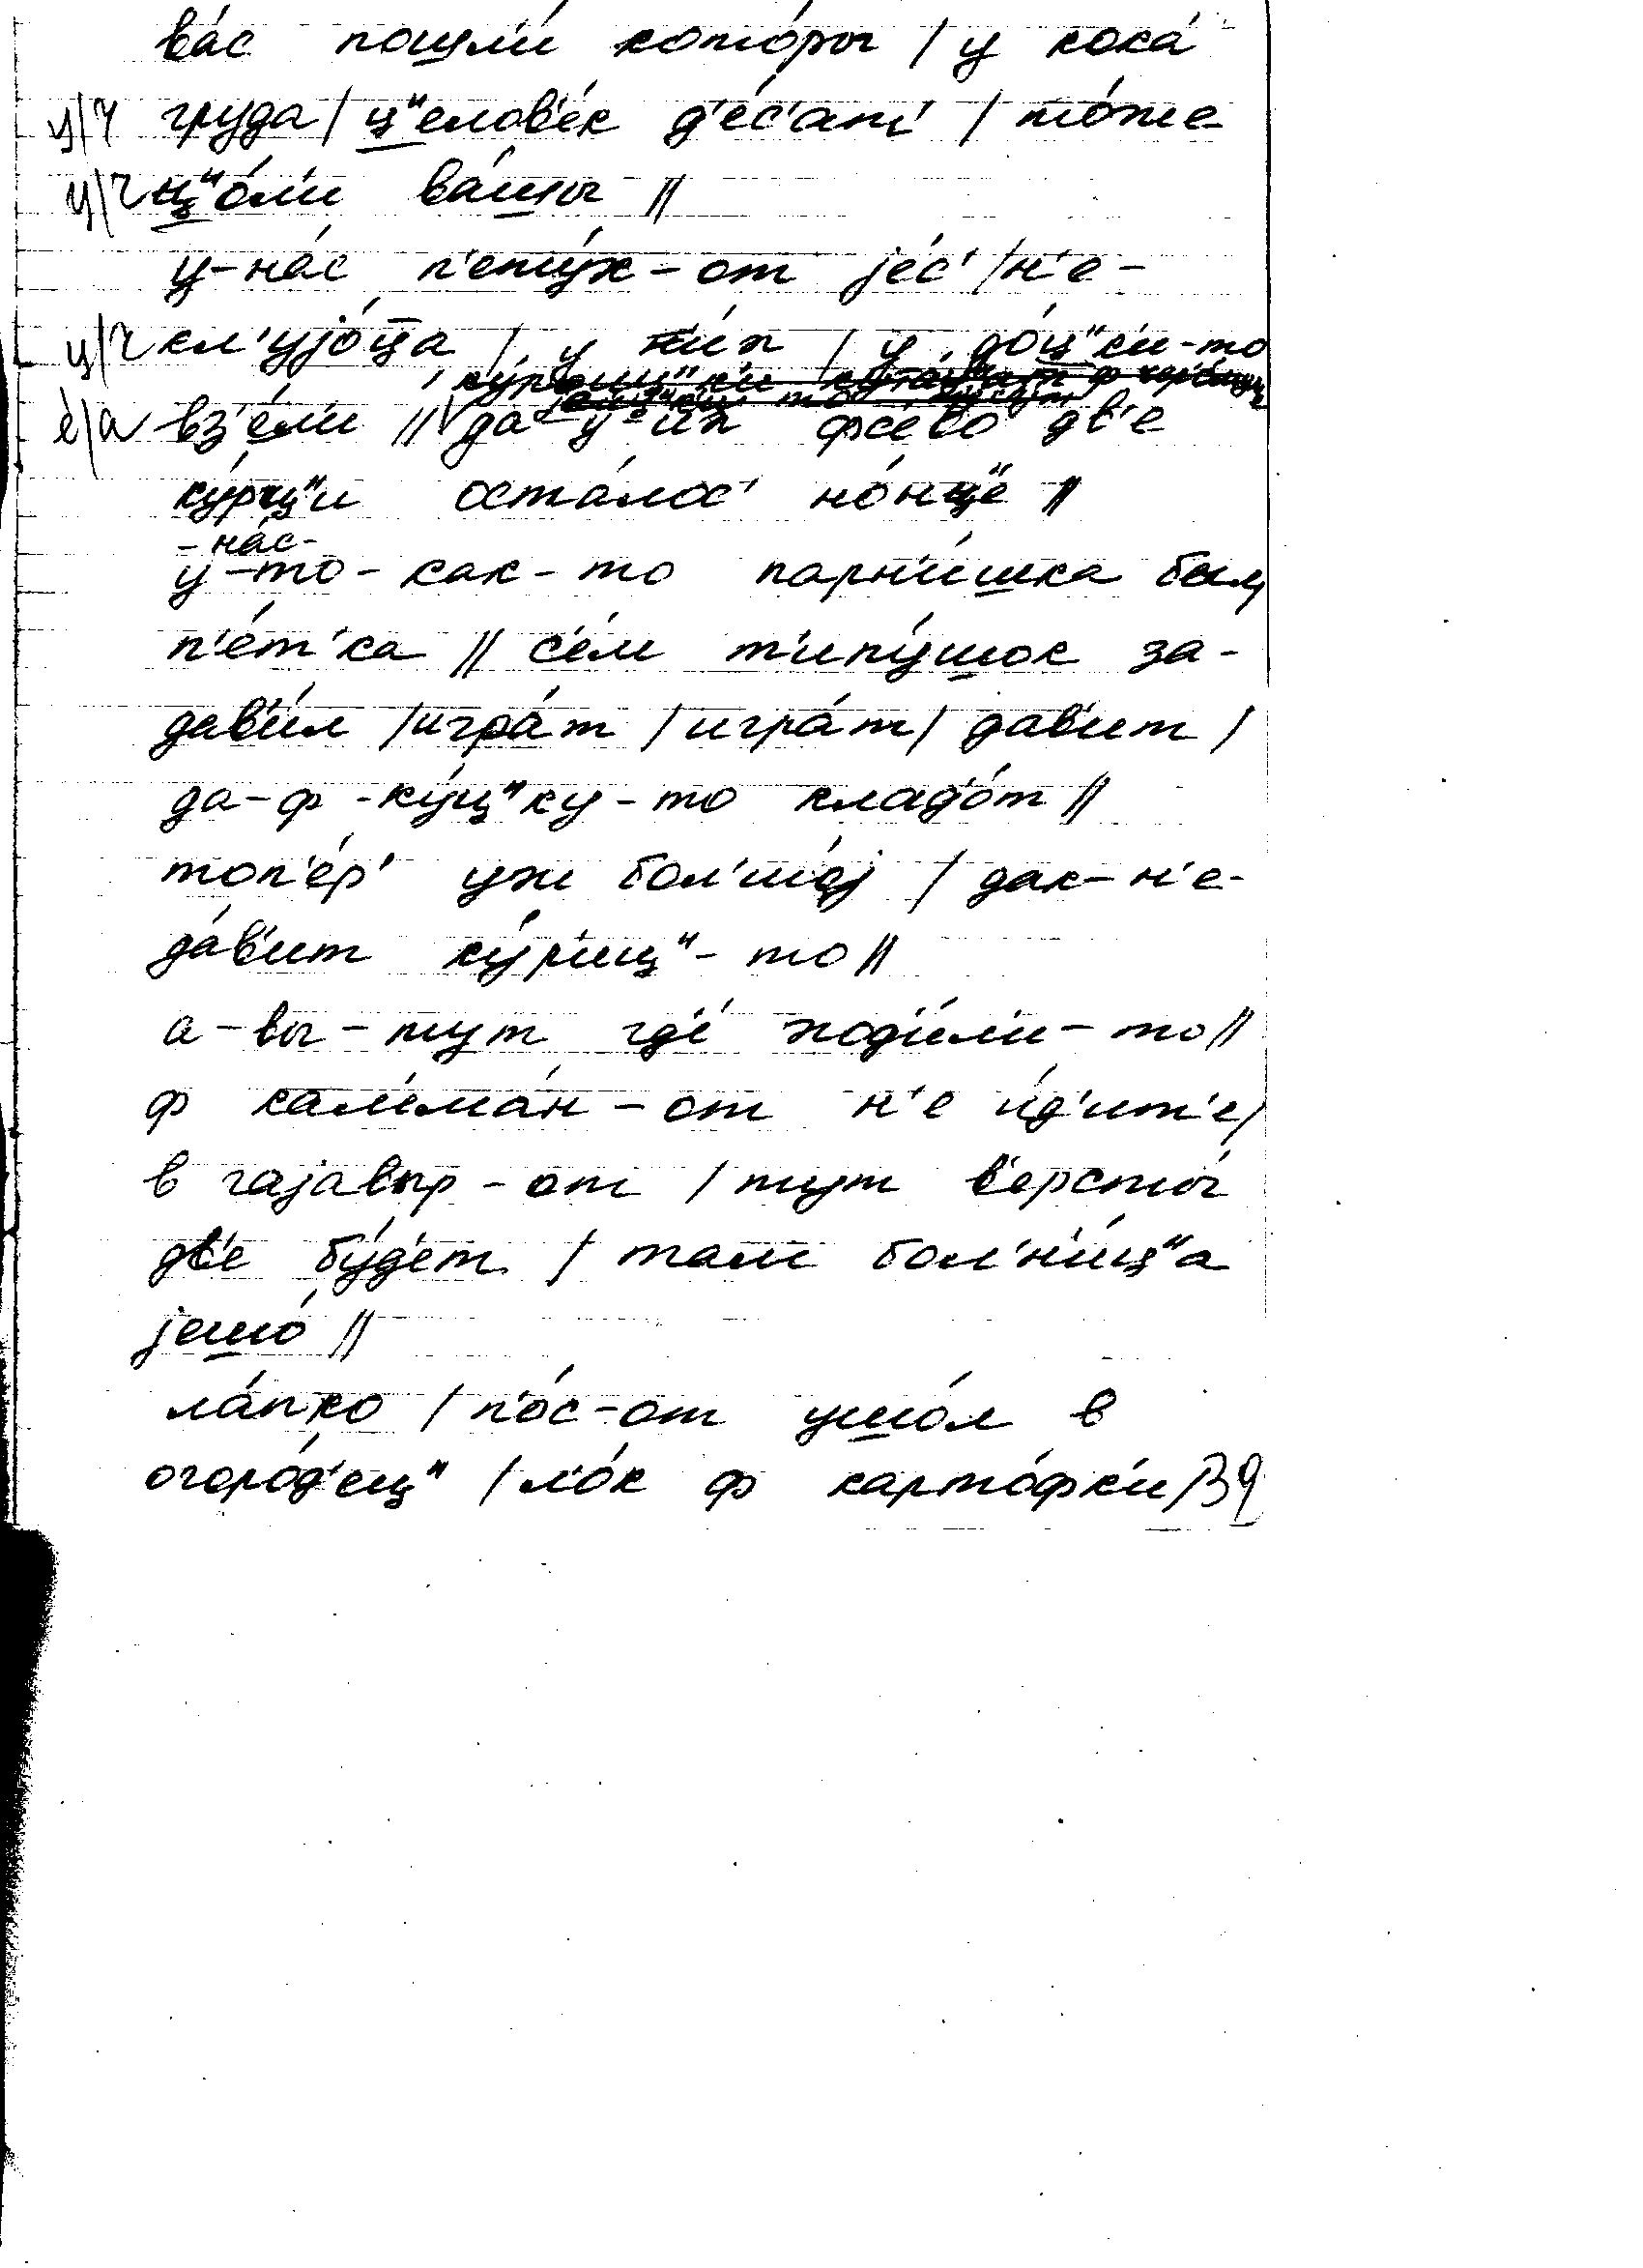 ва́с пошли́ кото́ры / у кока́
ц/ч груда / ц"елов'е́к д'е́с'ат' / то́же
ц/ч ц"о́ли ва́шы //
у-на́с п'ету́х-от jе́с' / н'е-
ц/ч кл'уjо́ца / у них / у до́ц"ки-то
е́/а вз'е́ли // да у-их фс'ево́ дв'е
ку́рц"и оста́лос' но́нц"е //
-на́с-
у-то-как-то парни́шка был
п'е́т'ка // с'е́м т'ипу́шок за-
дави́л / игра́т / игра́т / давит /
да-ф-ку́ц"ку-то клад'о́т //
топ'е́р' уж бол'шо́j / дак-н'е-
да́вит ку́риц"-то //
а-вы-тут гд'е́ ходи́ли-то //
ф калима́н-от н'е и́д'ит'е /
в гаjавыр-от / тут в'ерсты́
дв'е бу́д'ет / там бол'ни́ц"а
jешо́ //
ла́пко / п'о́с-от ушо́л в
огоро́д'ец" / л'о́к ф карто́фки /